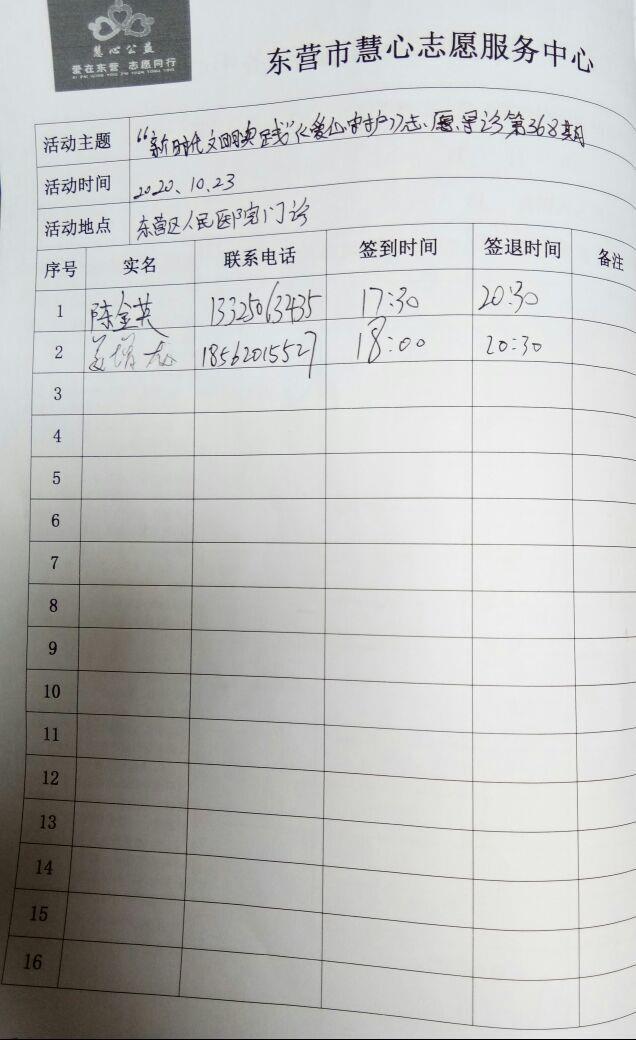 慧心公益
爱在东营 志愿同行
东营市慧心志愿服务中心
活动主题 “新时代文明实践”仁爱心守护门志愿导诊第368期
活动时间 2020.10.23
活动地点 东营区人民医院门诊
序号 实名 联系电话 签到时间 签退时间 备注
1 陈金英 13325063435 17:30 20:30
2 18562015527 18:00 20:30
3
4
5
6
7
8
9
10
11
12
13
14
15
16